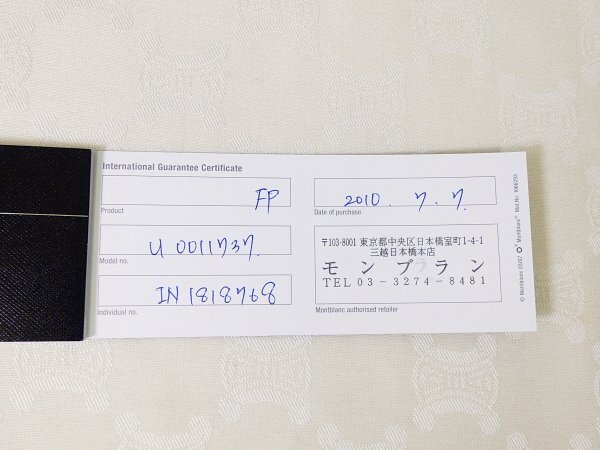 International Guarantee Certificate
FP
Product
U 0011737.
Model no.
IN 1818768
Individual no.
2010 . 7. 7.
Date of purchase
〒103-8001 東京都中央区日本橋室町1-4-1
三越日本橋本店
モンブラン
TEL 03-3274-8481
Montblanc authorised retailer
© Montblanc 03/07 Montblanc® Mat.No. 1066293